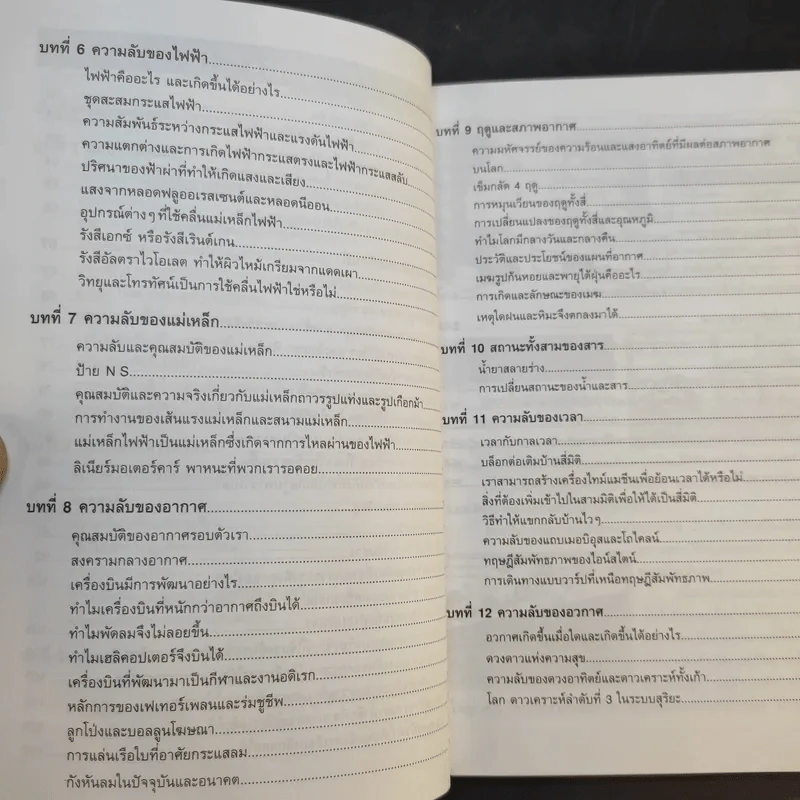 บทที่ 6 ความลับของไฟฟ้า
ไฟฟ้าคืออะไร และเกิดขึ้นได้อย่างไร
ชุดสะสมกระแสไฟฟ้า
ความสัมพันธ์ระหว่างกระแสไฟฟ้าและแรงดันไฟฟ้า
ความแตกต่างและการเกิดไฟฟ้ากระแสตรงและไฟฟ้ากระแสสลับ
ปริศนาของฟ้าผ่าที่ทำให้เกิดแสงและเสียง
แสงจากหลอดฟลูออเรสเซนต์และหลอดนีออน
อุปกรณ์ต่างๆ ที่ใช้คลื่นแม่เหล็กไฟฟ้า
รังสีเอกซ์ หรือรังสีเรินต์เกน
รังสีอัลตราไวโอเลต ทำให้ผิวไหม้เกรียมจากแดดเผา
วิทยุและโทรทัศน์เป็นการใช้คลื่นไฟฟ้าใช่หรือไม่
บทที่ 7 ความลับของแม่เหล็ก
ความลับและคุณสมบัติของแม่เหล็ก
ป้าย N S
คุณสมบัติและความจริงเกี่ยวกับแม่เหล็กถาวรรูปแท่งและรูปเกือกม้า
การทำงานของเส้นแรงแม่เหล็กและสนามแม่เหล็ก
แม่เหล็กไฟฟ้าเป็นแม่เหล็กซึ่งเกิดจากการไหลผ่านของไฟฟ้า
ลิเนียร์มอเตอร์คาร์ พาหนะที่พวกเรารอคอย
บทที่ 8 ความลับของอากาศ
คุณสมบัติของอากาศรอบตัวเรา
สงครามกลางอากาศ
เครื่องบินมีการพัฒนาอย่างไร
ทำไมเครื่องบินที่หนักกว่าอากาศถึงบินได้
ทำไมพัดลมจึงไม่ลอยขึ้น
ทำไมเฮลิคอปเตอร์จึงบินได้
เครื่องบินที่พัฒนามาเป็นกีฬาและงานอดิเรก
หลักการของเฟเทอร์เพลนและร่มชูชีพ
ลูกโป่งและบอลลูนโฆษณา
การแล่นเรือใบที่อาศัยกระแสลม
กังหันลมในปัจจุบันและอนาคต
บทที่ 9 ฤดูและสภาพอากาศ
ความมหัศจรรย์ของความร้อนและแสงอาทิตย์ที่มีผลต่อสภาพอากาศ
บนโลก
เข็มกลัด 4 ฤดู
การหมุนเวียนของฤดูทั้งสี่
การเปลี่ยนแปลงของฤดูทั้งสี่และอุณหภูมิ
ทำไมโลกมีกลางวันและกลางคืน
ประวัติและประโยชน์ของแผนที่อากาศ
เมฆรูปก้นหอยและพายุไต้ฝุ่นคืออะไร
การเกิดและลักษณะของเมฆ
เหตุใดฝนและหิมะจึงตกลงมาได้
บทที่ 10 สถานะทั้งสามของสาร
น้ำยาสลายร่าง
การเปลี่ยนสถานะของน้ำและสาร
บทที่ 11 ความลับของเวลา
เวลากับกาลเวลา
บล็อกต่อเติมบ้านสี่มิติ
เราสามารถสร้างเครื่องไทม์แมชีนเพื่อย้อนเวลาได้หรือไม่
สิ่งที่ต้องเพิ่มเข้าไปในสามมิติเพื่อให้ได้เป็นสี่มิติ
วิธีทำให้แขกกลับบ้านไวๆ
ความลับของแถบเมอบิอุสและโถไคลน์
ทฤษฎีสัมพัทธภาพของไอน์สไตน์
การเดินทางแบบวาร์ปที่เหนือทฤษฎีสัมพัทธภาพ
บทที่ 12 ความลับของอวกาศ
อวกาศเกิดขึ้นเมื่อใดและเกิดขึ้นได้อย่างไร
ดวงดาวแห่งความสุข
ความลับของดวงอาทิตย์และดาวเคราะห์ทั้งเก้า
โลก ดาวเคราะห์ลำดับที่ 3 ในระบบสุริยะ